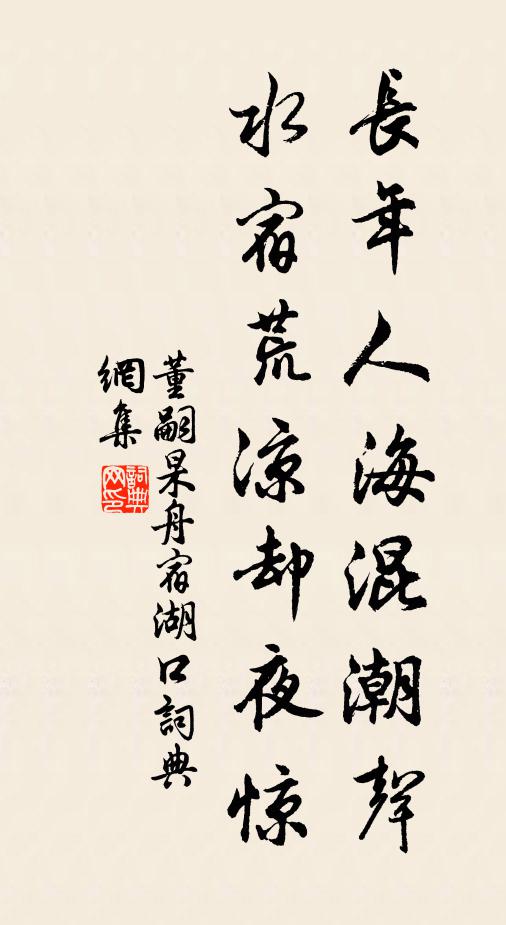 長年人海混潮聲
水宿荒涼却夜惊
董嗣杲舟宿湖口詞典
網集
詞典網印